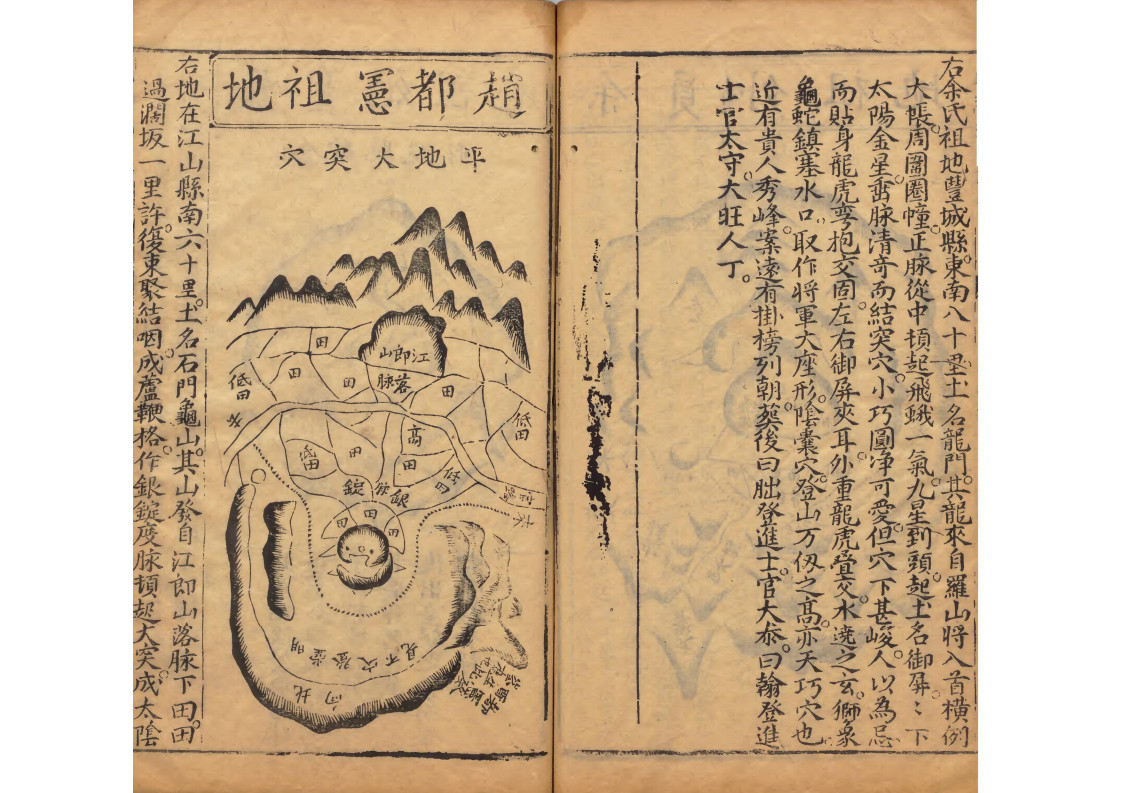 右余氏祖地豐城縣東南八十里土名龍門其龍來自羅山將入首橫例
大帳周圍圈幢正脉從中頓起飛蛾一氣九星到頭起土名御屏〻下
太陽金星出脉清奇而結突穴小巧圓净可愛但穴下甚峻人以為忌
而貼身龍虎彎抱交固左右御屏夾耳外重龍虎疊交水遶之玄獅象
龜蛇鎮塞水口取作將軍大座形陰囊穴登山万仭之髙亦天巧穴也
近有貴人秀峰案遠有掛榜列朝葵後曰朏登進士官大叅曰翰登進
士官太守大旺人丁
趙都憲祖地
平地大突穴
江郎山
落脉
田
田
田
田
低田
低田
高田
田
低田
低田
銀
錠
田
田
田
水
明堂登穴不見
向北
右地在江山縣南六十里土名石門龜山其山發自江郎山落脉下田田
過濶坂一里許復東聚結咽成蘆鞭格作銀錠度脉頓起大突成太陰